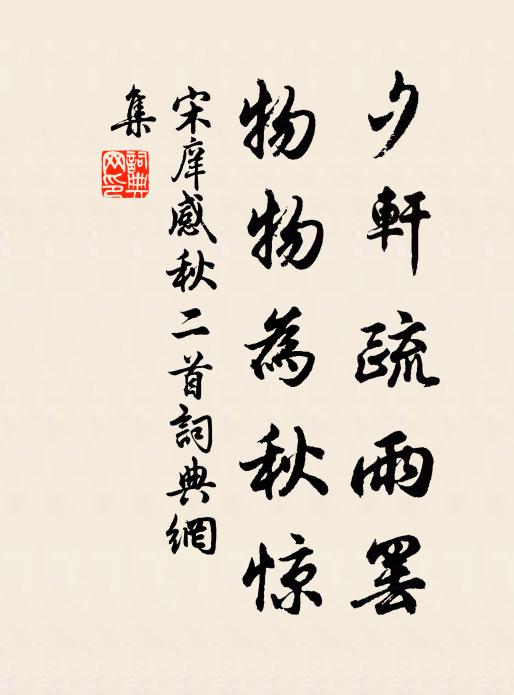 夕軒疏雨罢
物物為秋惊
宋庠感秋二首詞典網
集
詞典網印